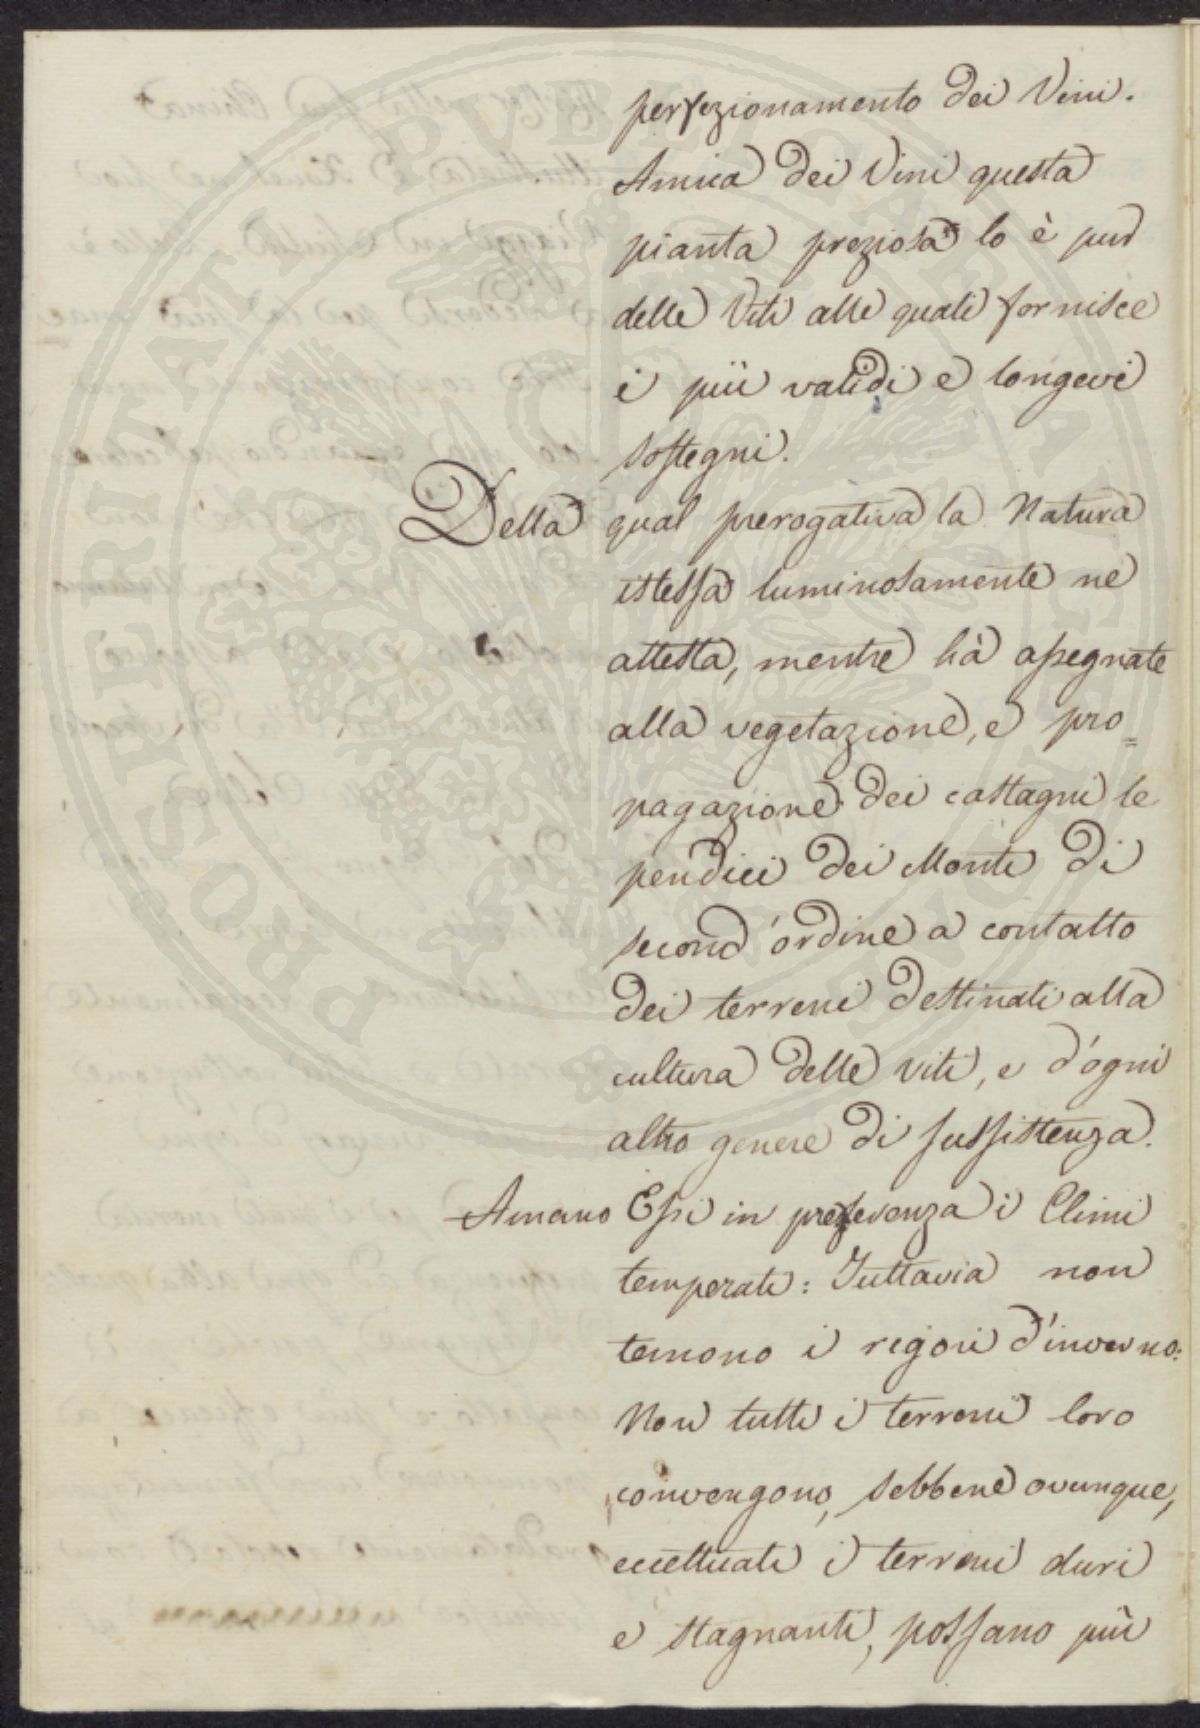 perfezionamento dei Vini.
Amica dei Vini questa
pianta preziosa lo è pur
delle Viti alle quali fornisce
i più validi e longevi
sostegni.
Della qual prerogativa la Natura
istessa luminosamente ne
attesta, mentre hà assegnate
alla vegetazione, e pro=
pagazione dei castagni le
pendici dei Monti di
second'ordine a contatto
dei terreni destinati alla
cultura delle viti, e d'ogni
altro genere di sussistenza.
Amano Essi in preferenza i Climi
temperati: Tuttavia non
temono i rigori d'inverno:
Non tutti i terreni loro
convengono, sebbene ovunque,
eccettuati i terreni duri
e stagnanti, possano più